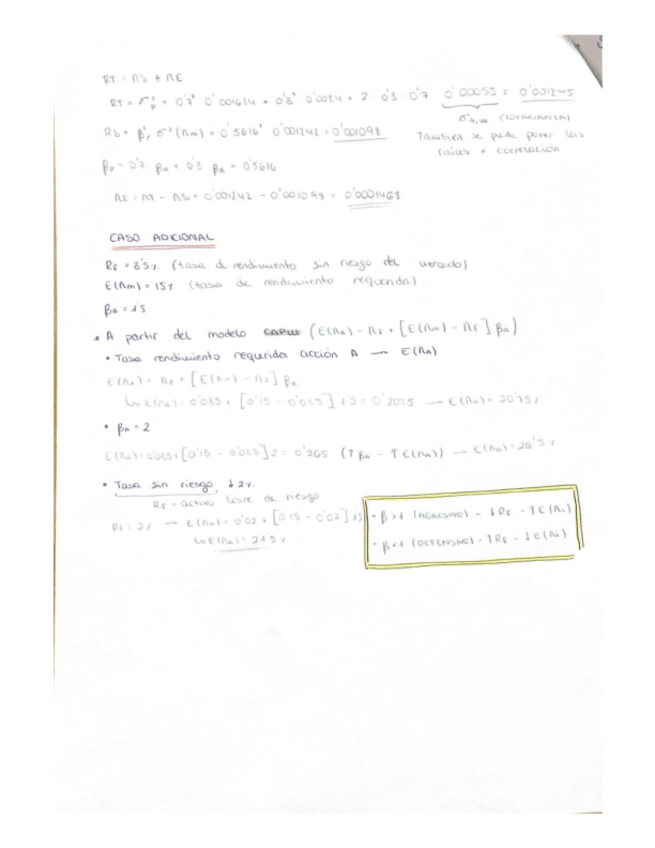 RT = RS + RE
RT = σ²p = 0'7² 0'001624 + 0'3² 0'0024 + 2 · 0'3 · 0'7 0'00055 = 0'001245
(COVARIANZA)
RS = βp² σ²(Rm) = 0'5616² 0'001242 = 0'001098
También se puede poner las
raíces * correlación
βp = 0'7 βA + 0'3 βB = 0'5616
RE = RT - RS = 0'001242 - 0'001098 = 0'0001468
CASO ADICIONAL
RF = 3'5% (tasa d rendimiento sin riesgo del mercado)
E(Rm) = 15% (tasa de rendimiento requerida)
βA = 1'5
* A partir del modelo (E(RA) = RF + [E(Rm) - RF] βA)
• Tasa rendimiento requerida acción A → E(RA)
E(RA) = RF + [E(Rm) - RF] βA
↳ E(RA) = 0'035 + [0'15 - 0'035] 1'5 = 0'2075 → E(RA) = 20'75%
• βA = 2
E(RA) = 0'035 + [0'15 - 0'035] 2 = 0'265 (↑ βA - ↑ E(RA)) → E(RA) = 20'5%
• Tasa sin riesgo ↓ 2%.
RF = activo libre de riesgo
RF = 2% → E(RA) = 0'02 + [0'15 - 0'02] 1'5
↳ E(RA) = 21'5%
• β > 1 (AGRESIVO) - ↓ RF - ↑ E(RA)
• β < 1 (DEFENSIVO) - ↑ RF - ↓ E(RA)